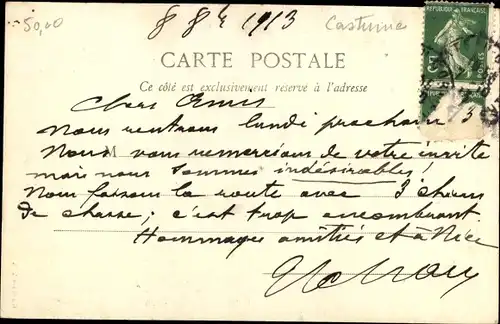 50,00
8 8bre 1913
Costume
RÉPUBLIQUE FRANÇAISE
CARTE POSTALE
Ce côté est exclusivement réservé à l'adresse
Chers Amis
Nous rentrons lundi prochain 3
Nous vous remercions de votre invite
mais nous sommes indésirables!
Nous faisons la route avec 3 chiens
de chasse; c'est trop encombrant.
Hommages amitiés et à Nice